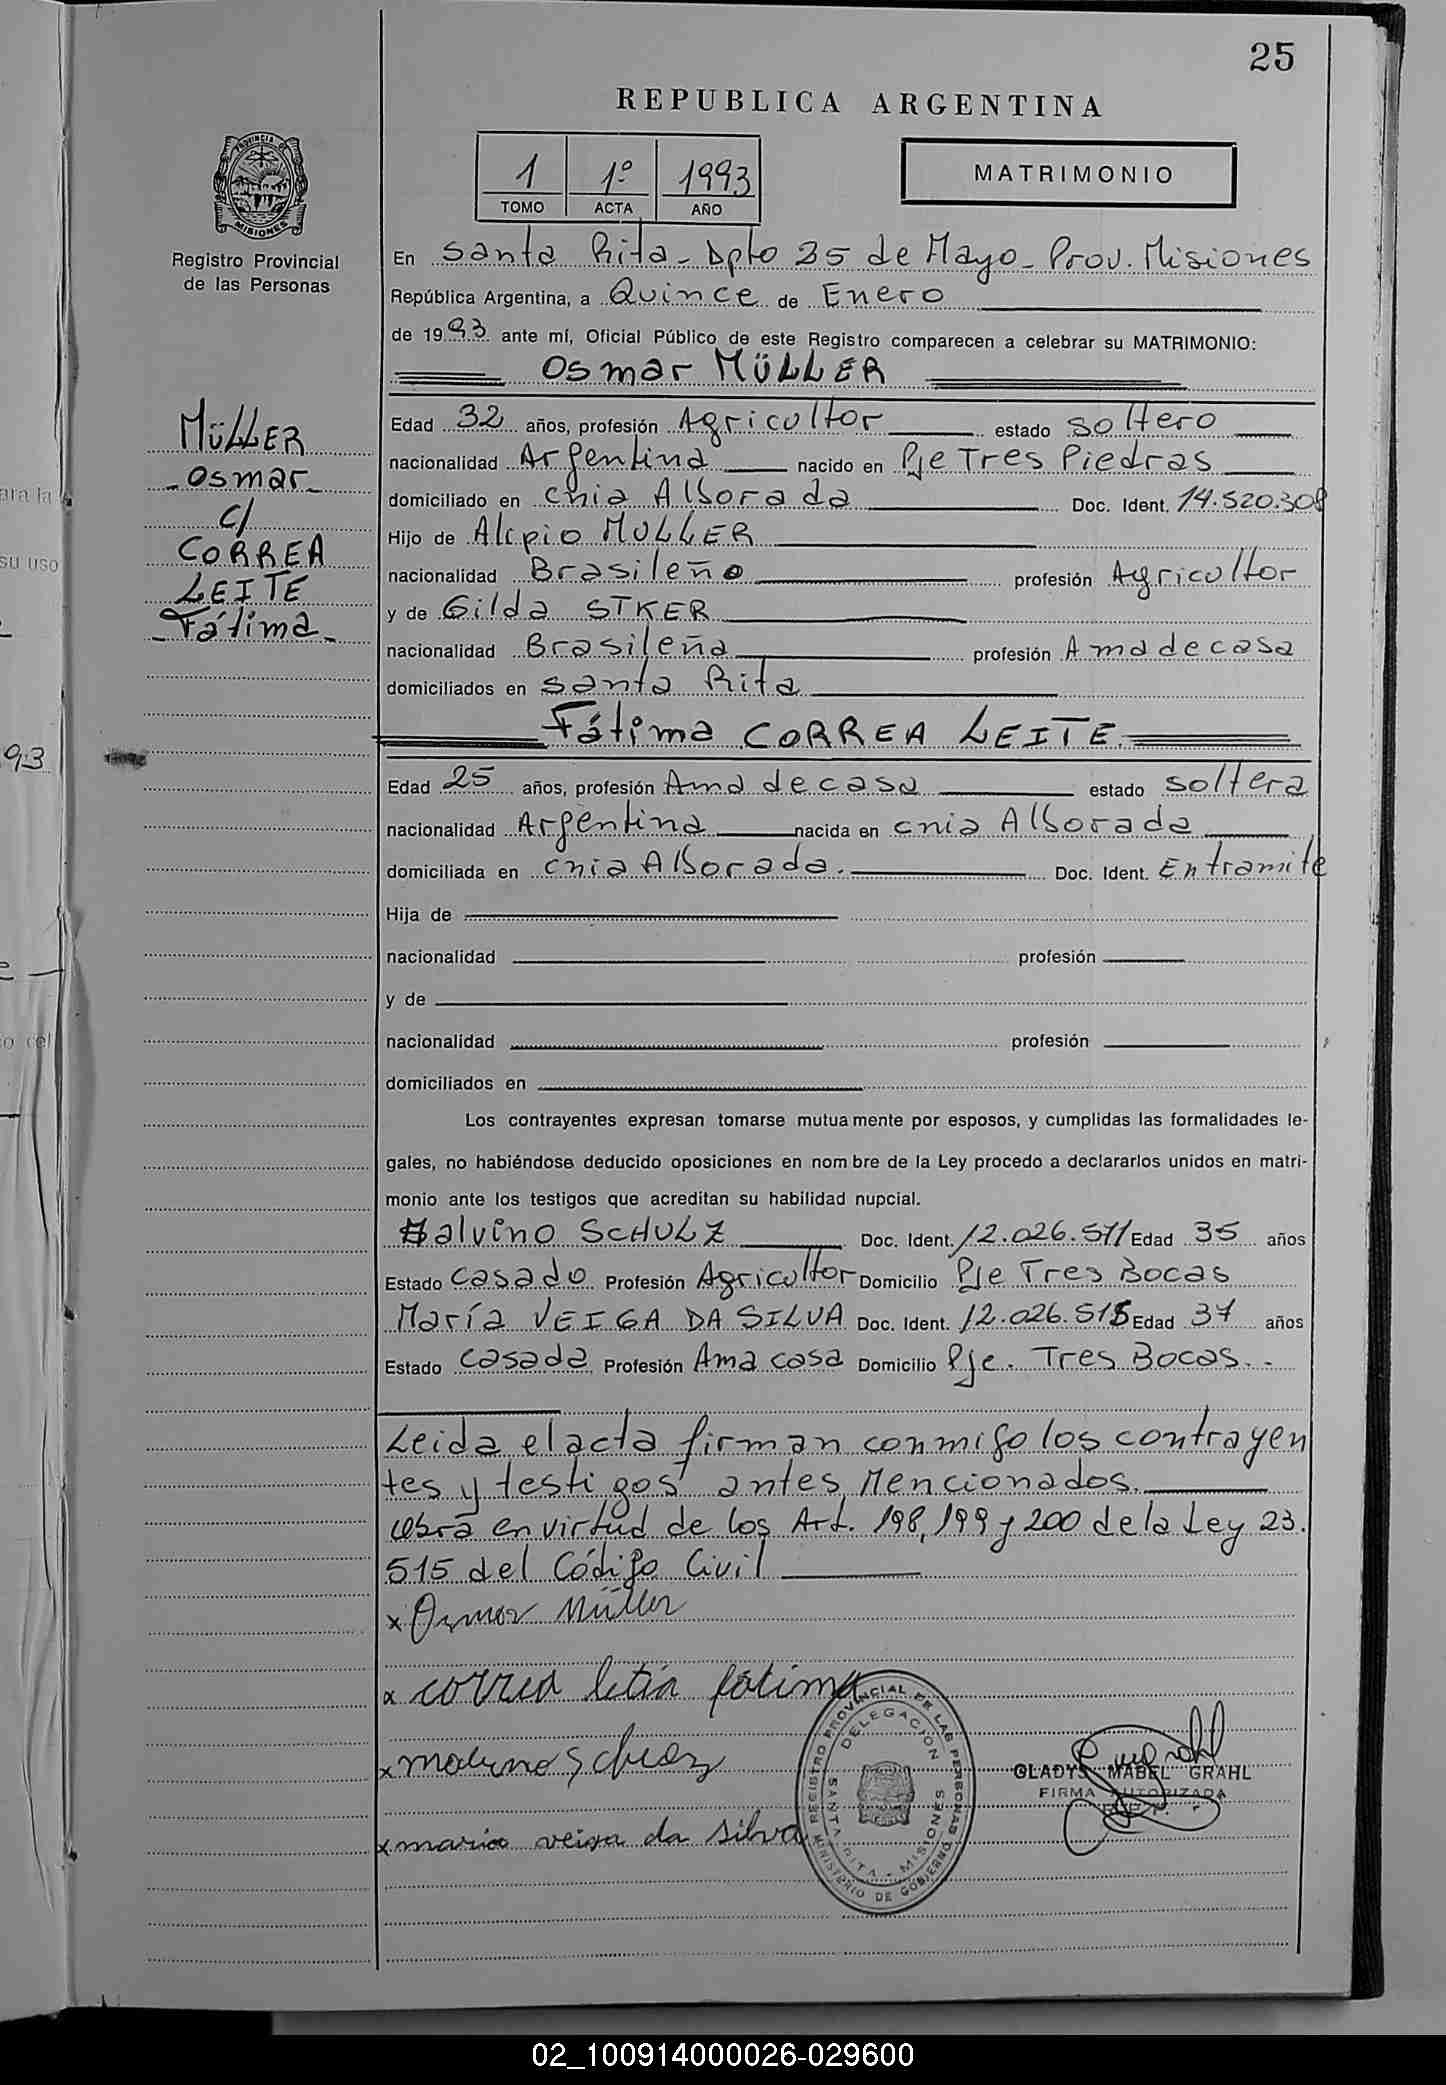 25
REPUBLICA ARGENTINA
1 1º 1993
TOMO ACTA AÑO
MATRIMONIO
PROVINCIA DE
MISIONES
Registro Provincial
de las Personas
En Santa Rita - Dpto 25 de Mayo - Prov. Misiones
República Argentina, a Quince de Enero
de 1993 ante mí, Oficial Público de este Registro comparecen a celebrar su MATRIMONIO:
Osmar MÜLLER
MÜLLER
- Osmar -
c/
CORREA
LEITE
- Fátima -
Edad 32 años, profesión Agricultor estado soltero
nacionalidad Argentina nacido en Pje Tres Piedras
domiciliado en cnia Alborada Doc. Ident. 14.520.308
Hijo de Alipio MULLER
nacionalidad Brasileño profesión Agricultor
y de Gilda STKER
nacionalidad Brasileña profesión Ama de casa
domiciliados en Santa Rita
Fátima CORREA LEITE
Edad 25 años, profesión Ama de casa estado soltera
nacionalidad Argentina nacida en cnia Alborada
domiciliada en cnia Alborada. Doc. Ident. En tramite
Hija de
nacionalidad profesión
y de
nacionalidad profesión
domiciliados en
Los contrayentes expresan tomarse mutuamente por esposos, y cumplidas las formalidades le-
gales, no habiéndose deducido oposiciones en nombre de la Ley procedo a declararlos unidos en matri-
monio ante los testigos que acreditan su habilidad nupcial.
alvino SCHULZ Doc. Ident. 12.026.511 Edad 35 años
Estado casado Profesión Agricultor Domicilio Pje Tres Bocas
María VEIGA DA SILVA Doc. Ident. 12.026.515 Edad 37 años
Estado casada Profesión Ama casa Domicilio Pje. Tres Bocas..
Leida el acta firman conmigo los contrayen
tes y testigos antes Mencionados.
en virtud de los Art. 198, 199 y 200 de la Ley 23.
515 del Código Civil
x Osmar Müller
x correa letia fatima
x
x maria veiga da silva
REGISTRO PROVINCIAL DE LAS PERSONAS
DELEGACION
SANTA RITA - MISIONES
MINISTERIO DE GOBIERNO
GLADYS MABEL GRAHL
FIRMA AUTORIZADA
ara la
su uso
93
o cel
02_100914000026-029600